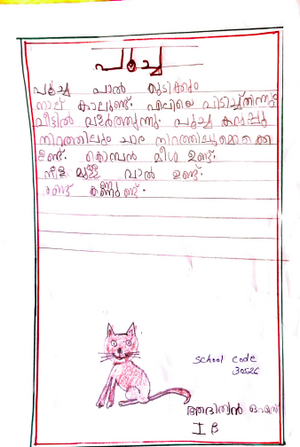 പൂച്ച
പൂച്ച പാൽ കുടിക്കും
നാല് കാലുണ്ട്. എലിയെ പിടിച്ച്തിന്നും
വീട്ടിൽ വളർത്തുന്നു. പൂച്ച കറുപ്പു
നിറത്തിലും ചാര നിറത്തിലുമൊക്കെ
ഉണ്ട്. കൊമ്പൻ മീശ ഉണ്ട്.
നീള മുള്ള വാൽ ഉണ്ട്.
രണ്ട് കണ്ണുണ്ട്.
School code
30526
I B